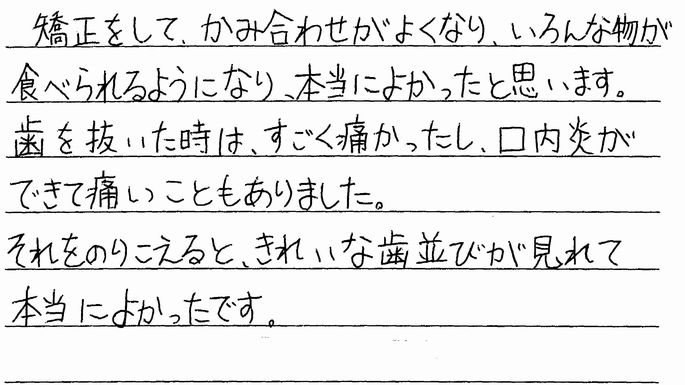 矯正をして、かみ合わせがよくなり、いろんな物が
食べられるようになり、本当によかったと思います。
歯を抜いた時は、すごく痛かったし、口内炎が
できて痛いこともありました。
それをのりこえると、きれいな歯並びが見れて
本当によかったです。